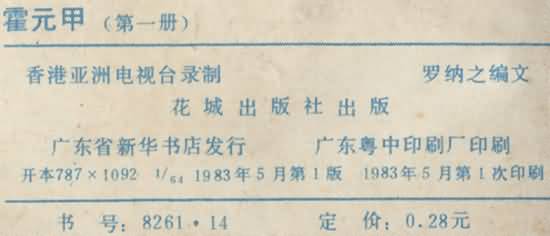 霍元甲（第一册）
香港亚洲电视台录制 罗纳之编文
花城出版社出版
广东省新华书店发行 广东粤中印刷厂印刷
开本787×1092 1/64 1983年5月第1版 1983年5月第1次印刷
书号：8261·14 定价：0.28元